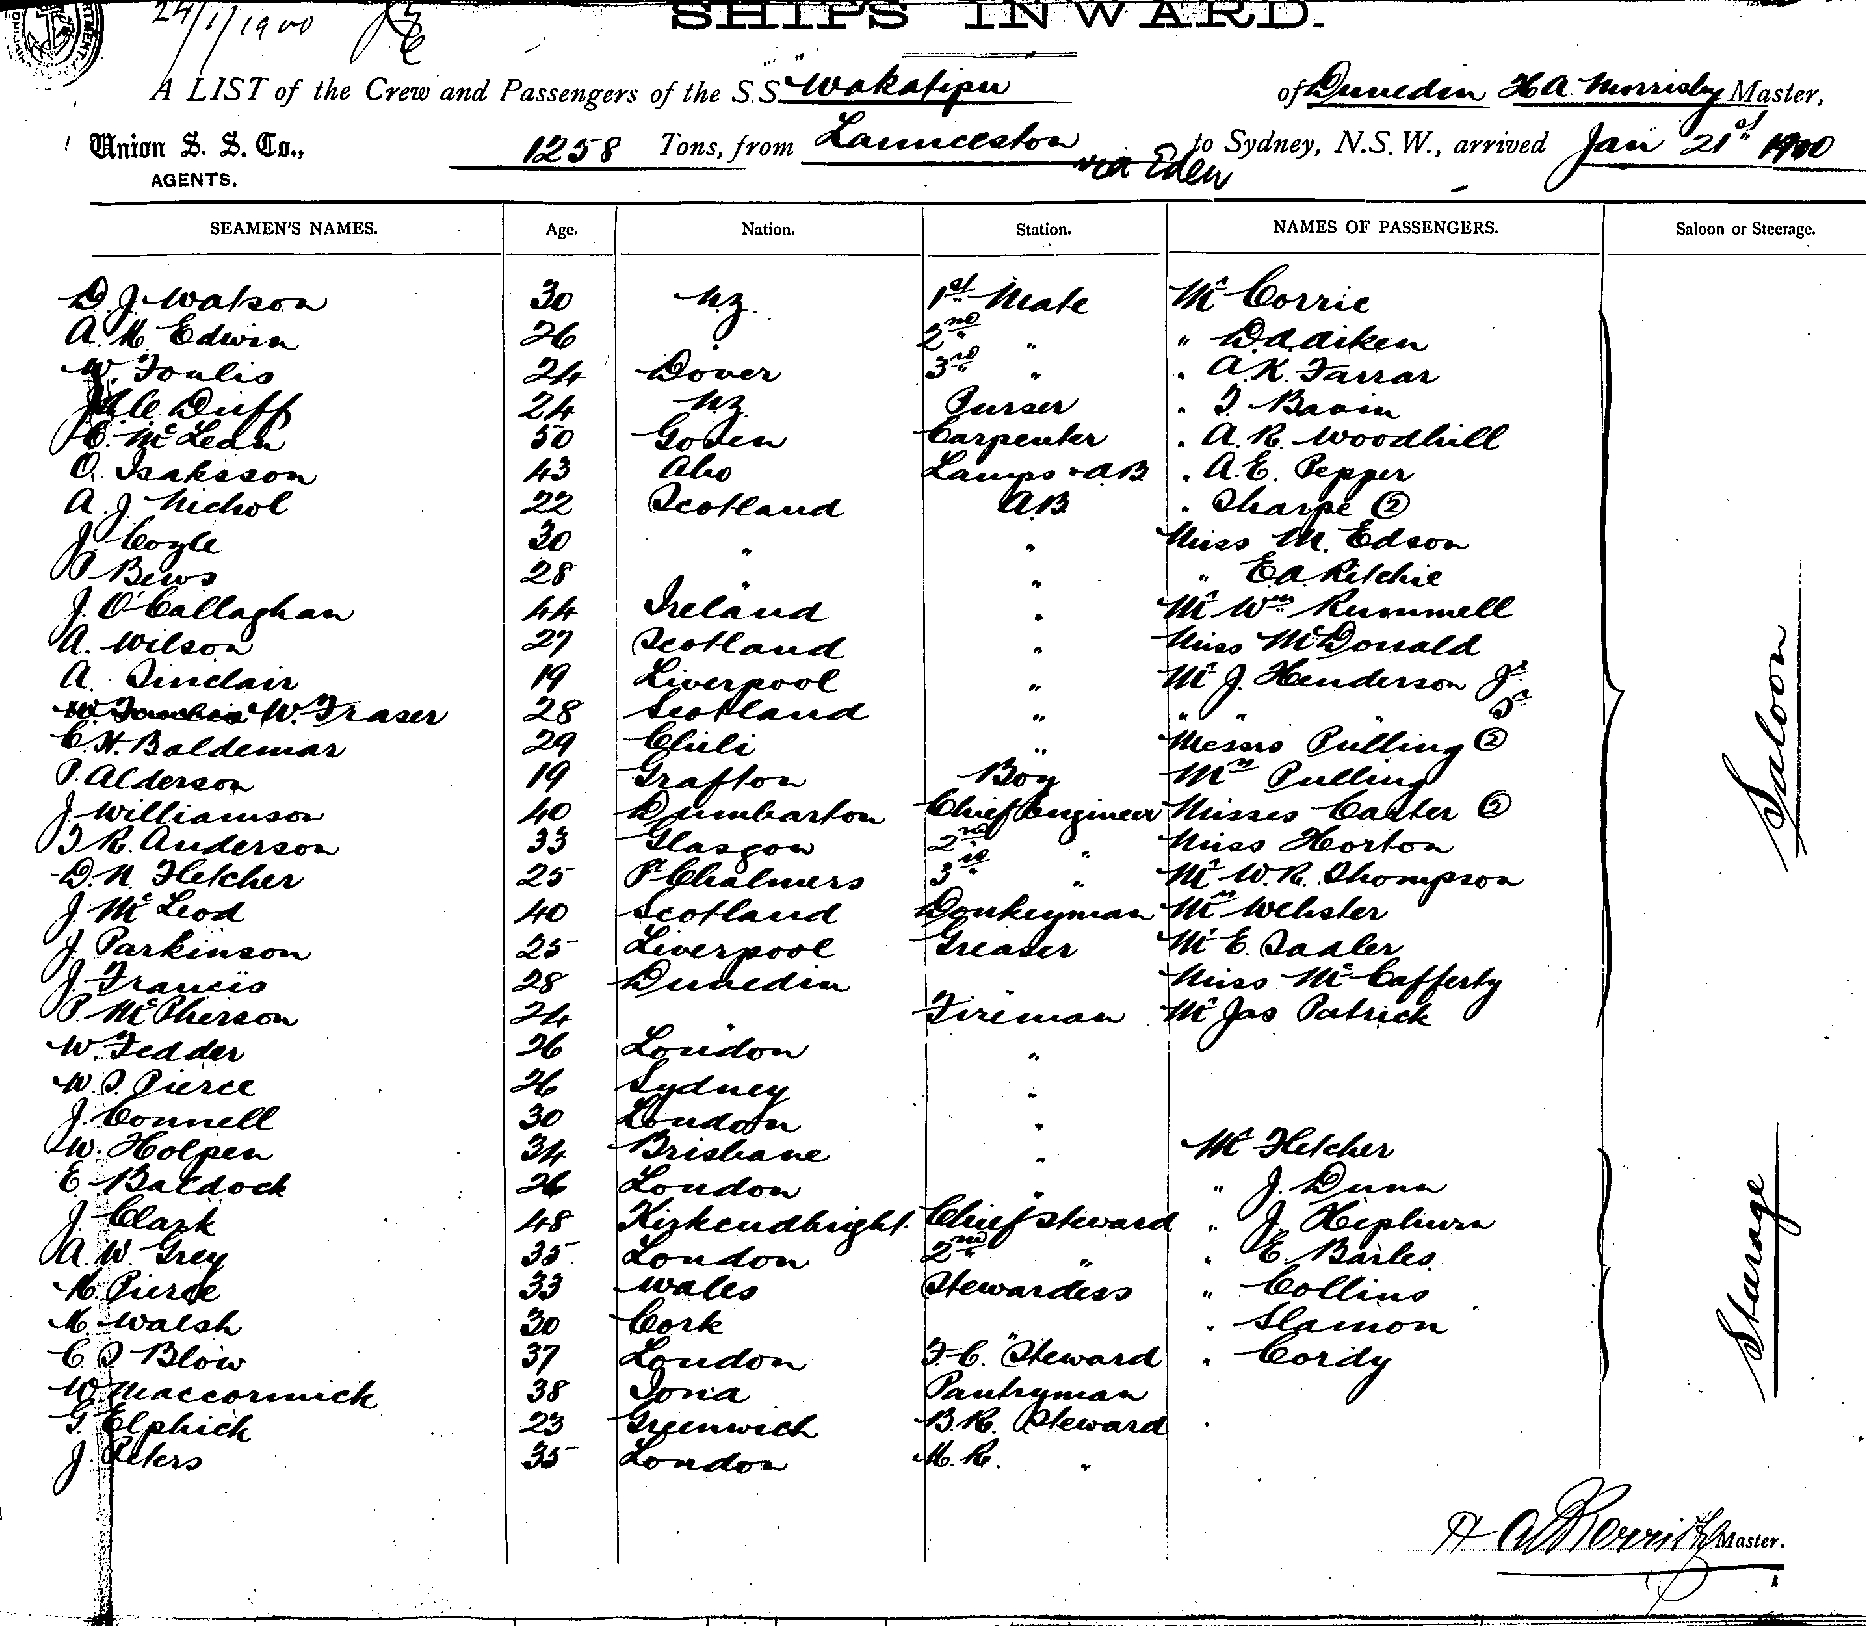 24/1/1900
SHIPS INWARD.
A LIST of the Crew and Passengers of the S.S. "Wakatipu of Dunedin H A Morrisby Master,
Union S. S. Co., 1258 Tons, from Launceston via Eden to Sydney, N.S.W., arrived Jan 21st 1900
AGENTS.
SEAMEN'S NAMES. Age. Nation. Station. NAMES OF PASSENGERS. Saloon or Steerage.
D. J. Watson 30 N.Z. 1st Mate Mr Corrie
A. M. Edwin 26 2nd " " D. A. Aiken
W. Foulis 24 Dover 3rd " " A. K. Farrar
Duff 24 N.Z. Purser " T. Bavin
C. McLean 50 Carpenter " A. R. Woodhill
O. Isaksson 43 Abo Lamps & A.B. " A. E. Pepper
A. J. Nichol 22 Scotland A.B " Sharpe (2)
J Coyle 30 " " Miss M. Edson
P Bews 28 " " " E. A. Ritchie
J. O'Callaghan 44 Ireland " Mr Wm Rummell
A. Wilson 27 Scotland " Miss McDonald
A. Sinclair 19 Liverpool " Mr J. Henderson Jr
W. Fraser 28 Scotland " " " Sr
C. H. Baldemar 29 Chili " Messrs Pulling (2)
P. Alderson 19 Grafton Boy Mrs Pulling
J Williamson 40 Dumbarton Chief Engineer Misses Carter (2)
T R. Anderson 33 Glasgow 2nd " Miss Horton
D. N. Fletcher 25 Pt Chalmers 3rd " Mr W. R. Thompson
J McLeod 40 Scotland Donkeyman Mrs Webster
J Parkinson 25 Liverpool Greaser Mr E. Sadler
J Francis 28 Dunedin " Miss McCafferty
P. McPherson 24 " Fireman Mr Jas Patrick
Saloon
W. Fedder 26 London "
W. T. Pierce 26 Sydney "
J. Connell 30 London "
W. Holpen 34 Brisbane " Mr Fletcher
E Baldock 26 London " " J. Dunn
J Clark 48 Kirkcudbright. Chief Steward " J. Hepburn
A. W. Grey 35 London 2nd " " E. Bailes
M. Pierce 33 Wales Stewardess " Collins
M. Walsh 30 Cork " " Slamon
C T Blow 37 London F. C. Steward " Cordy
Starage
W. Maccormick 38 Iona Pantryman
G. Elphick 23 Greenwich B.R. Steward
J. Peters 35 London M. R. "
H A Morrisby Master.